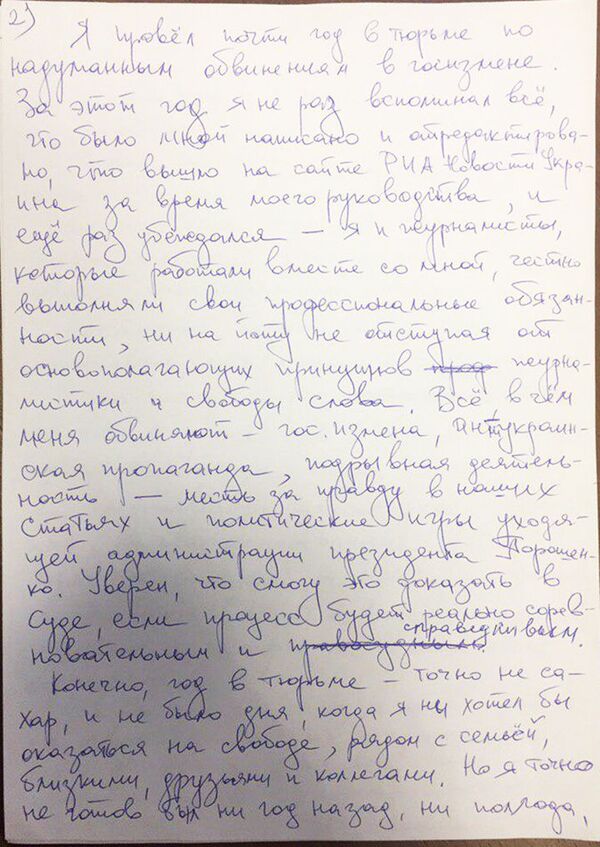 2)
Я провёл почти год в тюрьме по
надуманным обвинениям в госизмене.
За этот год я не раз вспоминал всё,
что было мной написано и отредактирова-
но, что вышло на сайте РИА Новости Укра-
ина за время моего руководства, и
ещё раз убеждался – я и журналисты,
которые работали вместе со мной, честно
выполняли свои профессиональные обязан-
ности, ни на йоту не отступая от
основополагающих принципов журна-
листики и свободы слова. Всё в чём
меня обвиняют – гос. измена, антиукраин-
ская пропаганда, подрывная деятель-
ность – месть за правду в наших
статьях и политические игры уходя-
щей администрации президента Порошен-
ко. Уверен, что смогу это доказать в
суде, если процесс будет реально сорев-
новательным и справедливым.
Конечно, год в тюрьме – точно не са-
хар, и не было дня, когда я ни хотел бы
оказаться на свободе, рядом с семьёй,
близкими, друзьями и коллегами. Но я точно
не готов был ни год назад, ни полгода,